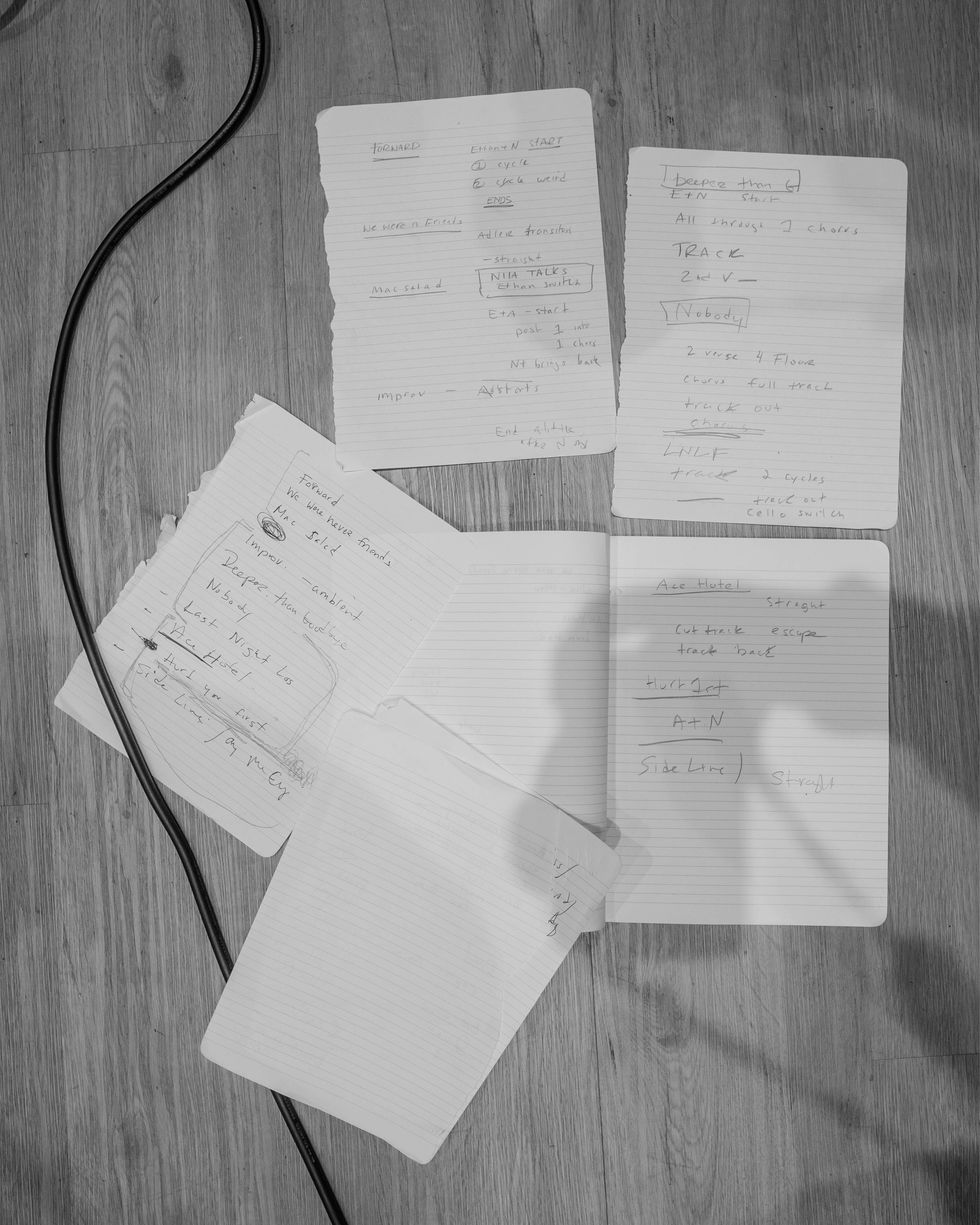 FORWARD
Ethan+N START
① cycle
② cycle weird
ENDS
We were n Friends
Adler transition
- straight
Mac salad
NIIA TALKS
Ethan switch
E+A - start
post 1 into
1 chors
N+ brings back
improv - A starts
End a little
Deeper than G
E+N start
All through 1 chorus
TRACK
2nd V —
Nobody
2 verse 4 Floor
chorus full track
track out
chorus
LNLF
track 2 cycles
track out
Cello switch
Forward
We were never friends
Mac Salad
Improv. - ambient
Deeper than Goodbye
Nobody
- Last Night Los
- Ace Hotel
- Hurt you first
Side Line
Ace Hotel
Straght
cut track escape
track back
Hurt 1st
A+N
Side Line